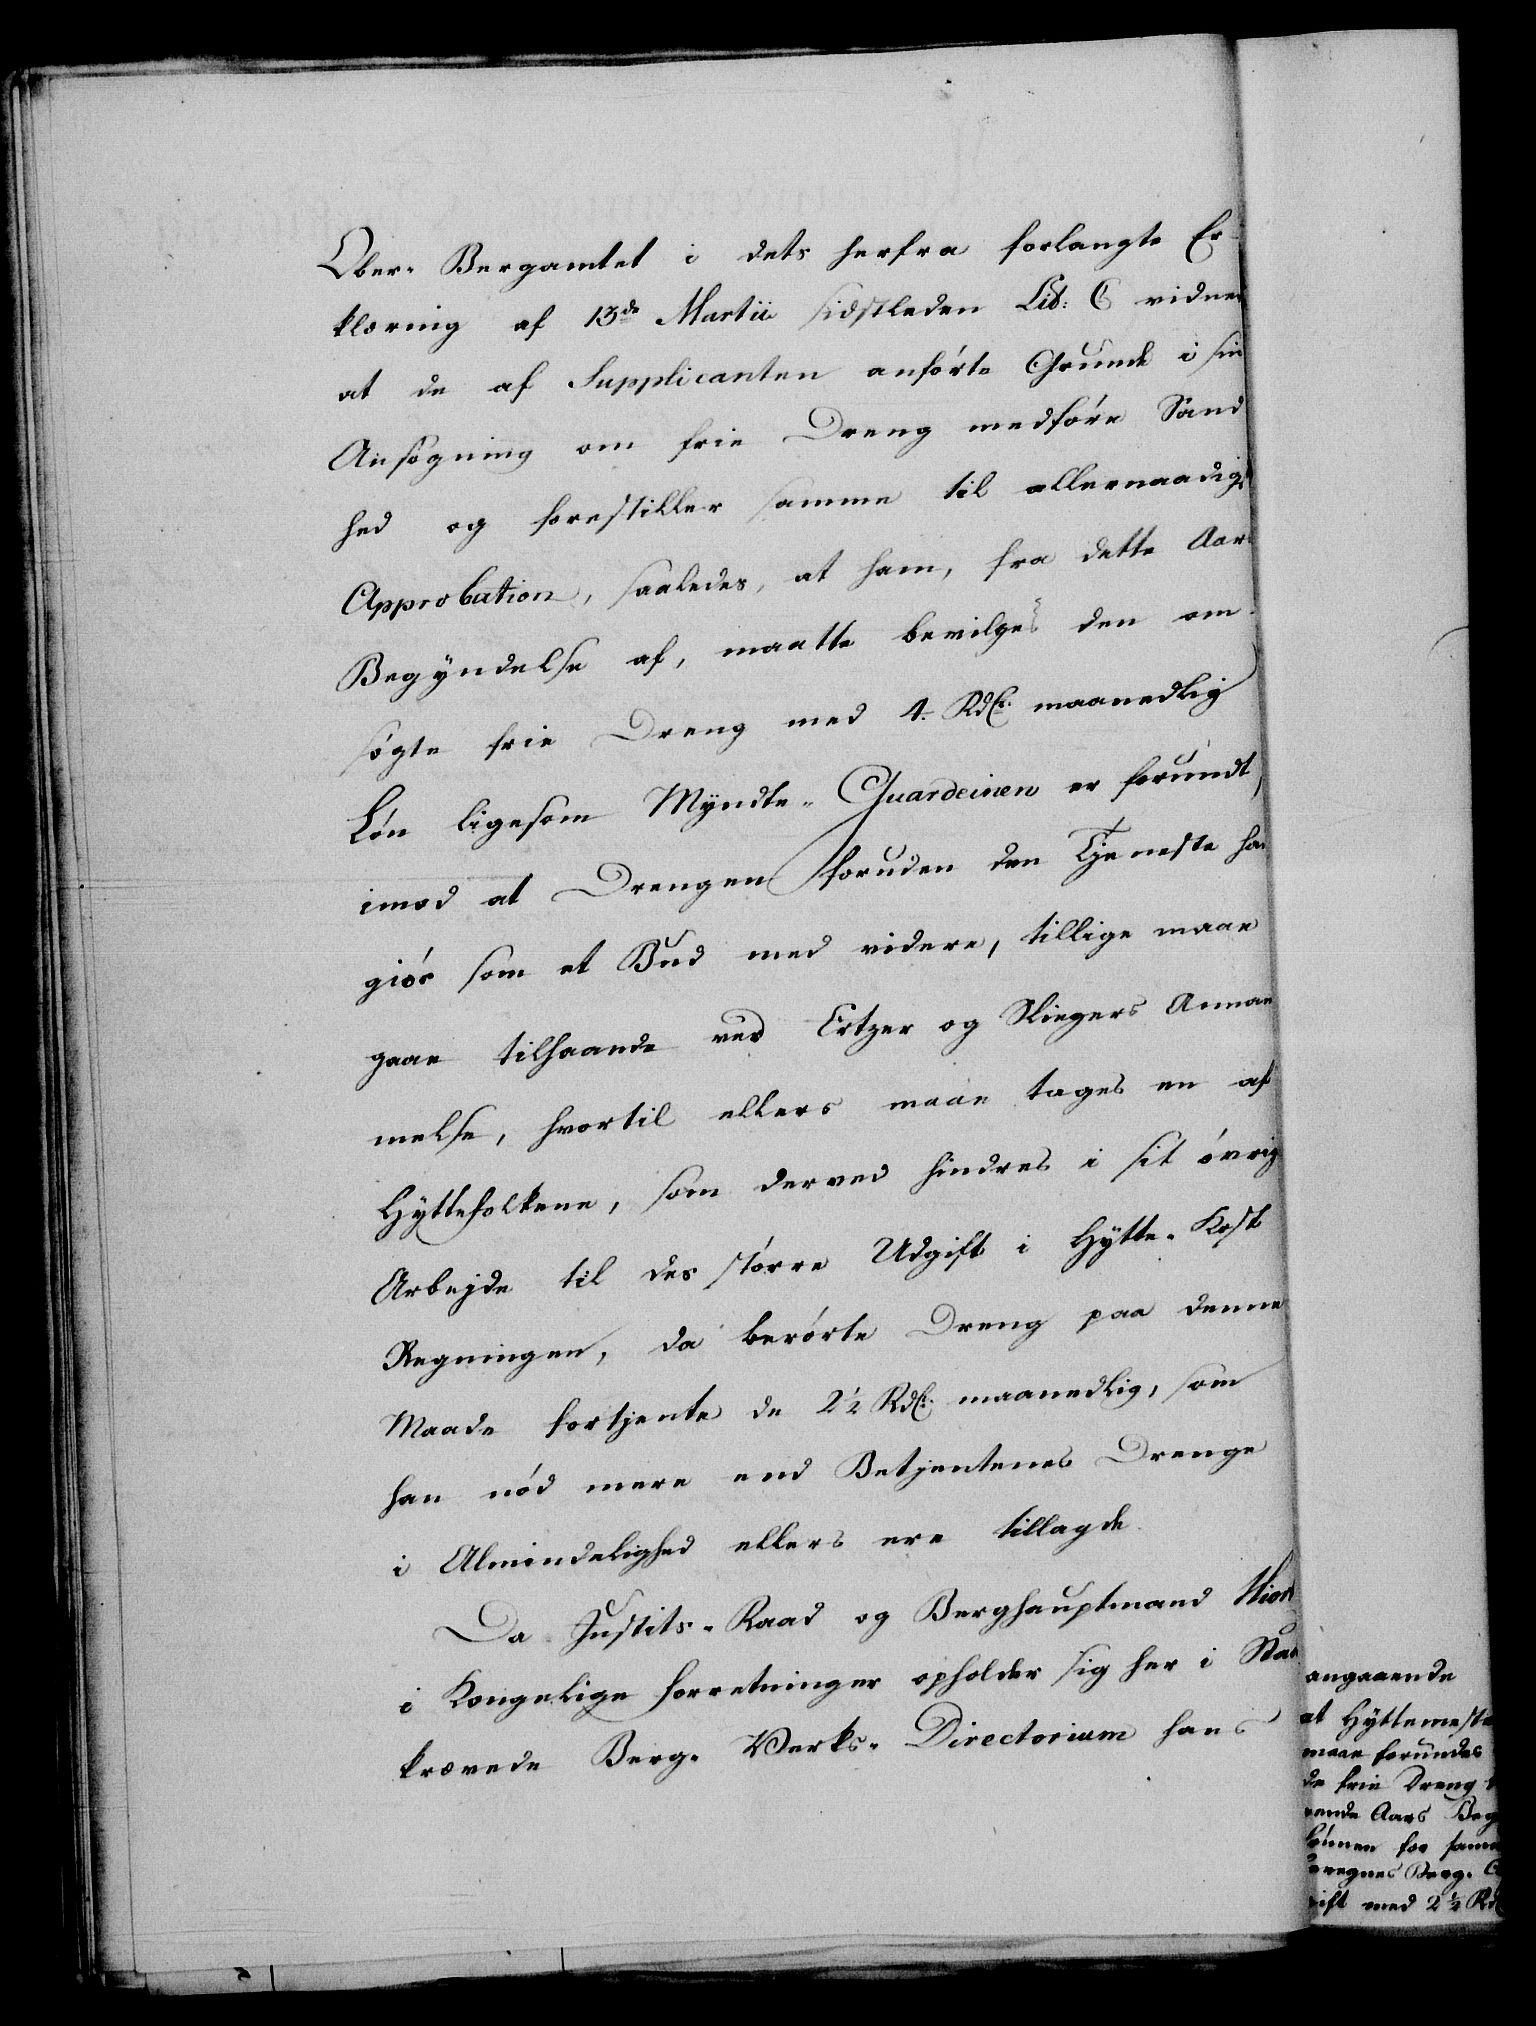 Ober-Bergamtet i dets herfra forlangte Er-
klæring af 13de Martii sidstleden Lit: C vidner
at de af Supplicanten anförte Grunde i sin
Ansögning om frie Dreng medföre Sand
hed og forestiller samme til allernaadigst
Approbation, saaledes, at ham, fra dette Aars
Begÿndelse af, maatte bevilges den om-
søgte frie Dreng med 4 Rdlr. maanedlig
Lön ligesom Mÿndte-Guardeinen er forundt,
imod at Drengen foruden den Tjeneste han
giör som et Bud med videre, tillige maae
gaae tilhaande ved Ertzer og Sliegers Annam
melse, hvortil ellers maae tages en af
Hÿttefolkene, som derved hindres i sit övrige
Arbejde til des större Udgift i Hÿtte-Kost
Regningen, da berörte Dreng paa denne
Maade fortjente de 2½ Rdlr. maanedlig, som
han nöd mere end Betjentenes Drenge
i Almindelighed ellers ere tillagde.
Da Justits-Raad og Berghauptmand Hiort
i Kongelige Forretninger opholder sig her i Staden
krævede Berg-Verks-Directorium hans
angaaende
at Hÿttemester
maae forundes
de frie Dreng
Aars Beg
Lönnen for samme
Berg-
med 2½ Rdlr